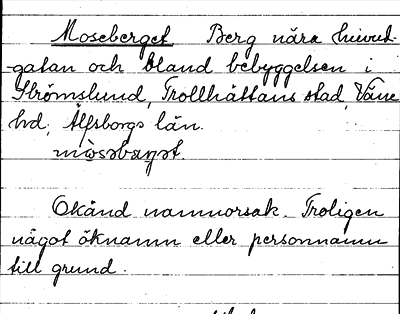 Moseberget Berg nära huvud-
gatan och bland bebyggelsen i
Strömslund, Trollhättans stad, Väne
hd, Älfsborgs län.

Okänd namnorsak. Troligen
något öknamn eller personnamn
till grund.